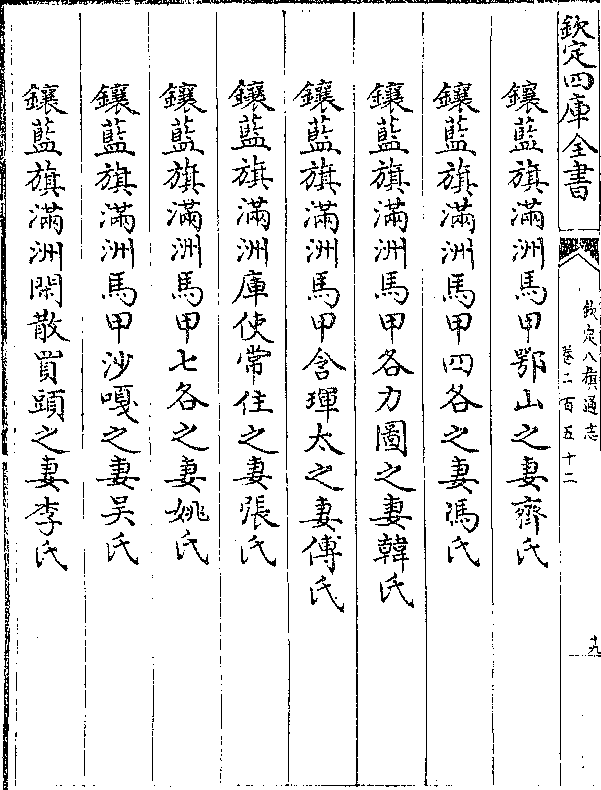 欽定四庫全書
欽定八旗通志
卷二百五十二
十九
鑲藍旗滿洲馬甲鄂山之妻齊氏
鑲藍旗滿洲馬甲四各之妻馮氏
鑲藍旗滿洲馬甲各力圖之妻韓氏
鑲藍旗滿洲馬甲含琿太之妻傅氏
鑲藍旗滿洲庫使常住之妻張氏
鑲藍旗滿洲馬甲七各之妻姚氏
鑲藍旗滿洲馬甲沙嘎之妻吳氏
鑲藍旗滿洲閑散買頭之妻李氏